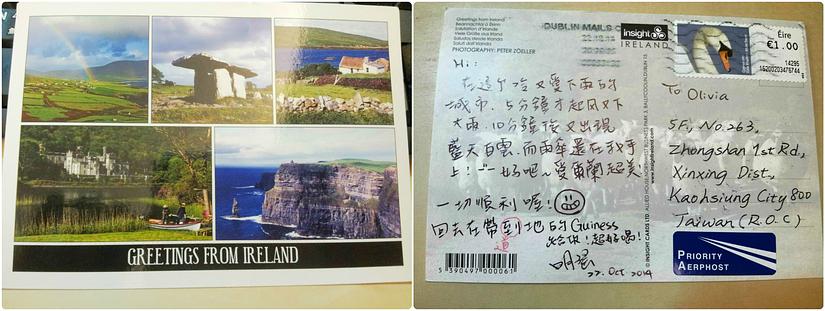 GREETINGS FROM IRELAND
Greetings from Ireland
Beannachtaí ó Éirinn
Salutation d'Irlande
Viele Grüße aus Irland
Saludos desde Irlanda
Saluti dall'Irlanda
PHOTOGRAPHY: PETER ZÖELLER
DUBLIN MAILS
insight
IRELAND
Éire
€1.00
14295
Hi:
在這個冷又愛下雨的
城市,5分鐘才起風又下
大雨,10分鐘後又出現
藍天白雲,而雨傘還在我手
上!一好吧~愛爾蘭超美
一切順利喔!
回去在帶到地的Guiness
道
給你!超好喝!
22. Oct 2014
To Olivia
5F, No.263,
Zhongshan 1st Rd.,
Xinxing Dist.,
Kaohsiung City 800
Taiwan (R.O.C)
PRIORITY
AERPHOST
5 390497 000061
© INSIGHT CARDS LTD.
www.insightireland.com